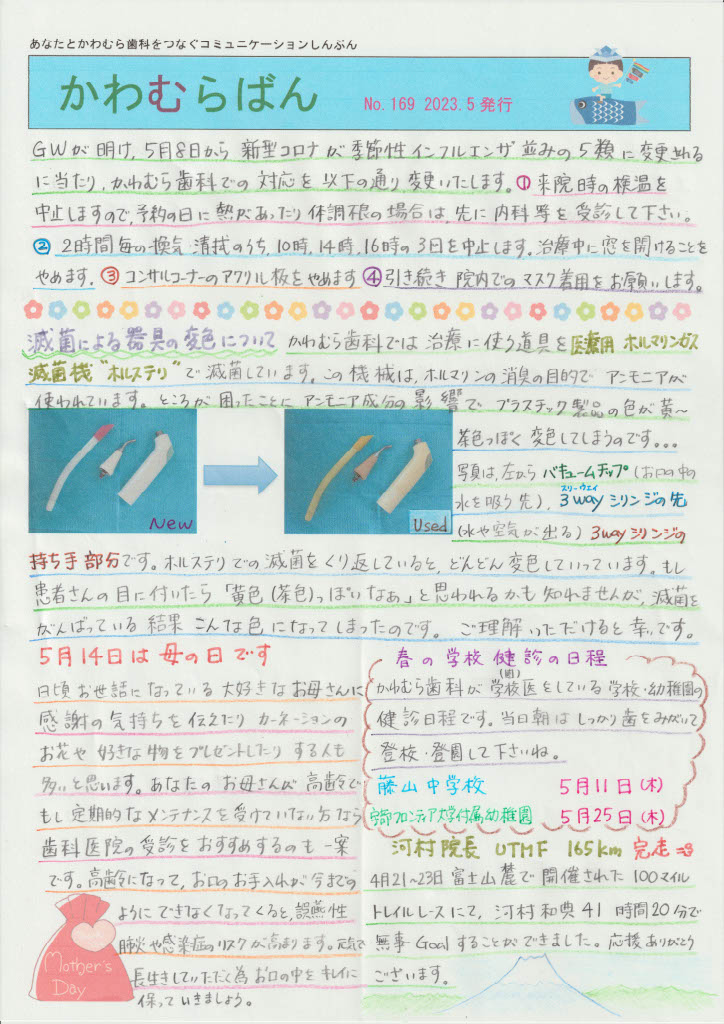 あなたとかわむら歯科をつなぐコミュニケーションしんぶん
かわむらばん
No.169 2023.5発行
GWが明け、5月8日から 新型コロナが季節性インフルエンザ並みの5類に変更される
に当たり、かわむら歯科での対応を以下の通り変更いたします。①来院時の検温を
中止しますので、予約の日に熱があったり体調不良の場合は、先に内科等を受診して下さい。
②2時間毎の換気 清拭のうち、10時、14時、16時の3日を中止します。治療中に窓を開けることを
やめます。③コンサルコーナーのアクリル板をやめます ④引き続き院内でのマスク着用をお願いします。
滅菌による器具の変色について かわむら歯科では治療に使う道具を医療用ホルマリンガス
滅菌機“ホルステリ”で滅菌しています。この機械は、ホルマリンの消臭の目的でアンモニアが
使われています。ところが困ったことにアンモニア成分の影響でプラスチック製品の色が黄〜
茶色っぽく変色してしまうのです。。。
New
Used
写真は、左からバキュームチップ(お口の中の
水を吸う先)、3wayシリンジの先
スリーウェイ
(水や空気が出る)3wayシリンジの
持ち手部分です。ホルステリでの滅菌をくり返していると、どんどん変色していっています。もし
患者さんの目に付いたら「黄色(茶色)っぽいなぁ」と思われるかも知れませんが、滅菌を
がんばっている結果こんな色になってしまったのです。 ご理解いただけると幸いです。
5月14日は母の日です
日頃お世話になっている大好きなお母さんに
感謝の気持ちを伝えたりカーネーションの
お花や好きな物をプレゼントしたりする人も
多いと思います。あなたのお母さんが高齢で
もし定期的なメンテナンスを受けていない方なら
歯科医院の受診をおすすめするのも一案
です。高齢になって、お口のお手入れが今までの
ようにできなくなってくると、誤嚥性
肺炎や感染症のリスクが高まります。元気で
長生きしていただく為お口の中をキレイに
保っていきましょう。
Mother's
Day
春の学校健診の日程
かわむら歯科が学校(園)医をしている学校・幼稚園の
健診日程です。当日朝はしっかり歯をみがいて
登校・登園して下さいね。
藤山中学校 5月11日(木)
宇部フロンティア大学付属幼稚園 5月25日(木)
河村院長 UTMF 165km 完走
4月21〜23日富士山麓で開催された100マイル
トレイルレースにて、河村和典41時間20分で
無事Goalすることができました。応援ありがとう
ございます。